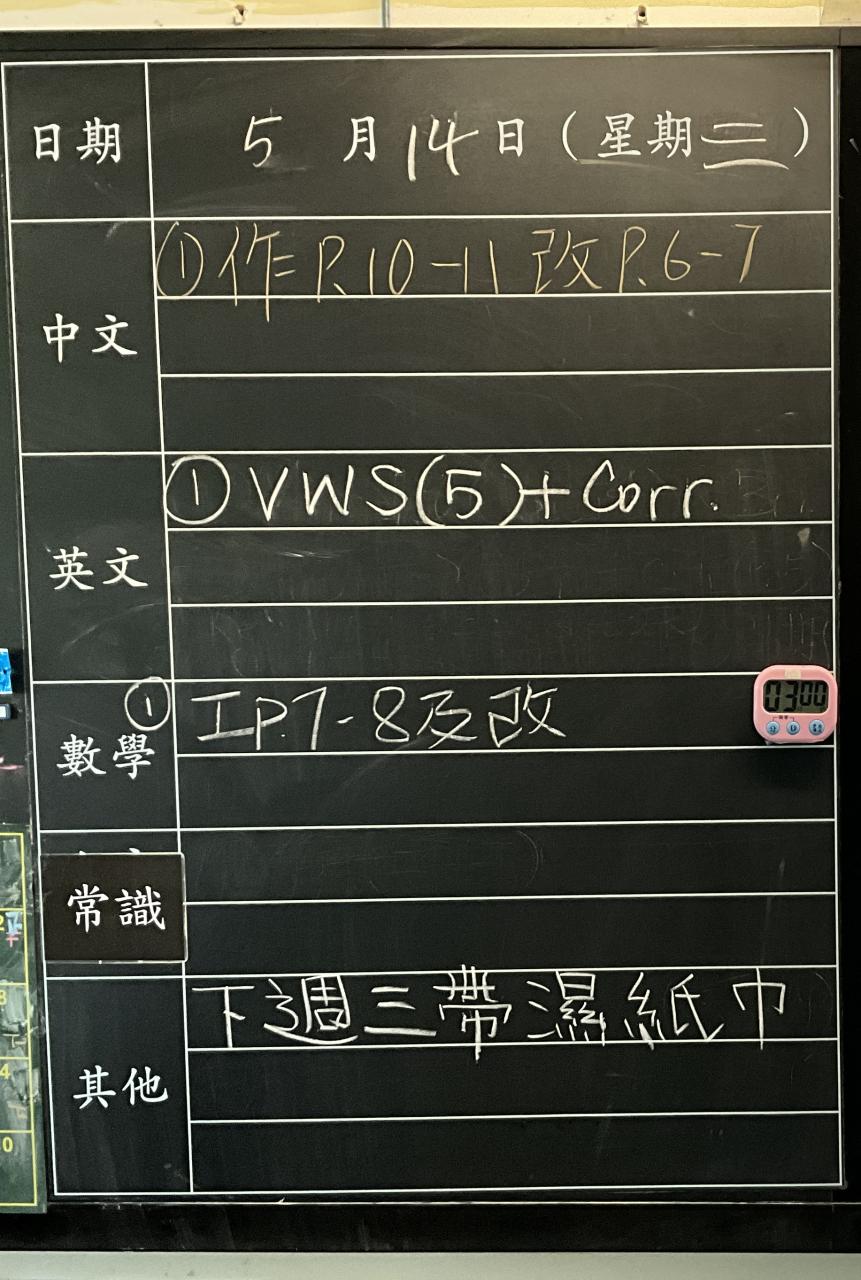 日期 5月14日(星期三)
中文 ①作P.10-11 改P.6-7
英文 ①VWS(5)+Corr.
數學 ①工P.7-8及改
03 00
常識
其他 下週三帶濕紙巾